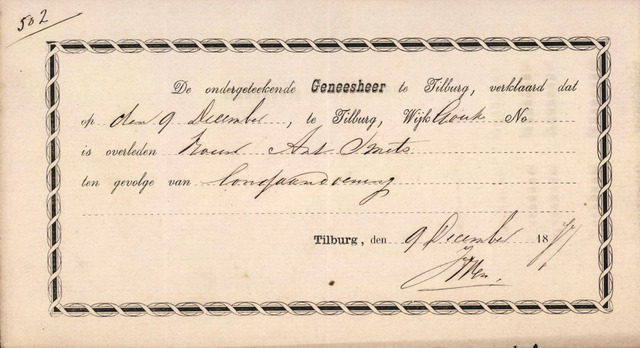 502
De ondergeteekende Geneesheer te Tilburg, verklaard dat
op den 9 December, te Tilburg, Wijk No
is overleden Ant Smets
ten gevolge van Longaandoening
Tilburg, den 9 December 187